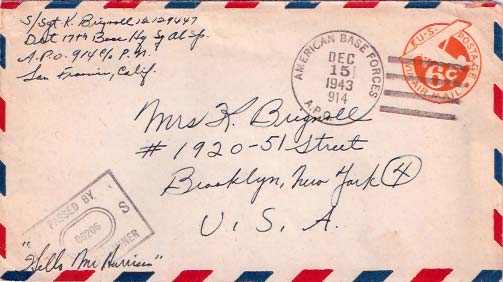 S/Sgt K. Brignoll 12129447
Det 17th Base Hq
A.P.O. 914 c/o P.M.
San Francisco, Calif.
AMERICAN BASE FORCES
DEC
15
1943
914
A.P.O.
U.S. POSTAGE
6¢
VIA AIR MAIL
Mrs K. Brignoll
# 1920-51 Street
Brooklyn, New York 4
U. S. A.
PASSED BY
06206
"Hello Mr Harrison"